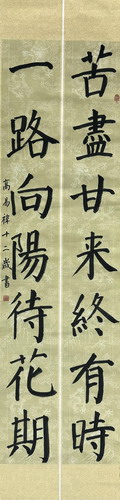 苦盡甘来終有時
一路向陽待花期
十二歲書